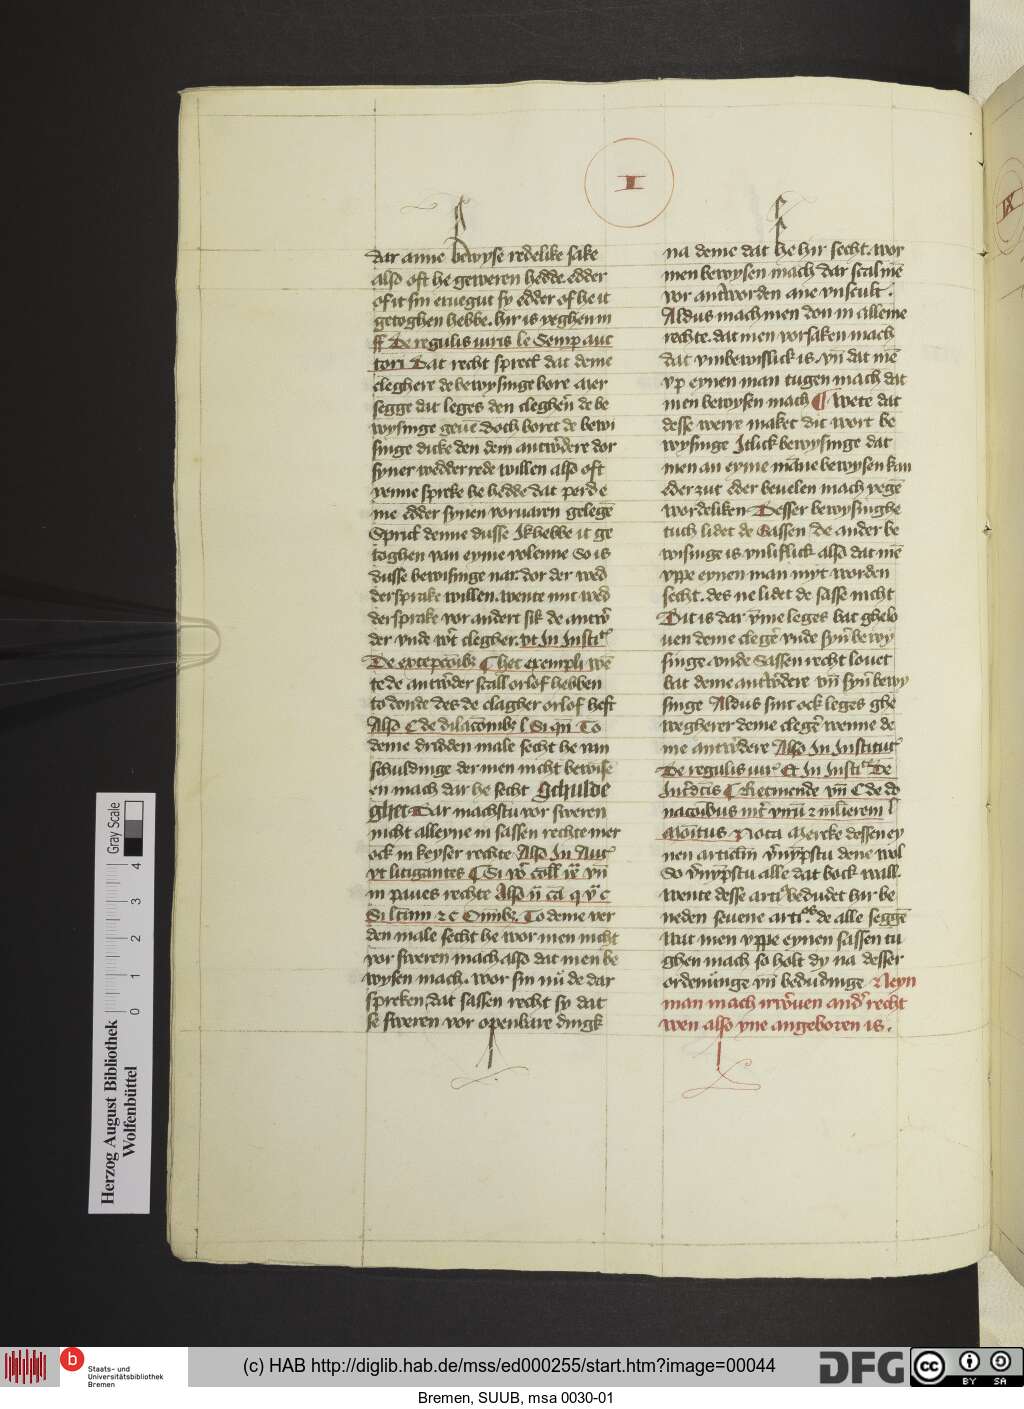 I
dar anne bewyse redelike sake
also oft he geweren hedde. edder
of it sin eruegut sy edder of he it
getoghen hebbe. hir is yeghen in
ff De regulis iuris le Semp auc
tori Dat recht sprect dat deme
cleghere de bewysinge bore auer
segge dit leges den clegheñ de be
wysinge geuē doch boret de bewi
singe dicke den dem antwdere dor
syner wedderrede willen also oft
yenne spreke he hedde dat perd e
me edder synen voruaren gelegē
Sprict denne dusse Ik hebbe it ge
toghen van eyme volenne So is
dusse bewisinge nar. dor der wed
dersprake willen. wente mit wed
dersprake vor andert sik de antw
der vnde wt clegher. vt In Insti
De exceptōib; C her exempli wē
te de antwder scall orlof hebben
to donde des de clagher orlof heft
Also C de dilacōnibe l Si qn̄ To
deme drudden male secht he van
schuldinge der men nicht bewise
en mach dar he secht Schulde
ghet Dar machstu vor sweren
nicht alleyne in sassen rechte mer
ock in keyser rechte Also In Aut
vt litigantes C Si vō coll iē vn̄
in paues rechte Also ij cā q v c
Si ltinn 2 c Omib;. To deme ver
den male secht he wor men nicht
vor sweren mach also dat men be
wysen mach. wor sin nū de dar
spreken dat sassen recht sy dat
se sweren vor openbare dingk
na deme dat he hir secht. wor
men bewysen mach dar scal mē
vor antworden ane vnscult.
Aldus mach men don in alleme
rechte. dat men vorsaken mach
dat vmbewisslick is. vn̄ dat mē
vp eynen man tugen mach dat
men bewysen mach ¶ Wete dat
desse werre maket dit wort be
wysinge Itlick bewysinge dat
men an eyme māne bewysen kan
eder zut eder beuelen mach yegē
wordeliken Desser bewysinghe
tuch lidet de Sassen De ander be
wisinge is vnliflick also dat mē
vppe eynen man myt worden
secht. des ne lidet de sasse nicht
Dit is dar v̄me leges bat ghelo
uen deme clegē vnde syn̄ bewy
singe. vnde Sassen recht louet
bat deme antwdere vn̄ syn̄ bewy
singe Aldus sint ock leges ghe
wegherer deme clegē wenne de
me antwdere Also In Institut
De regulis iur Et In Insti De
Intdcis C Recmende vn̄ C de do
nacōibus int virū 2 mlierem l
Moitus Nota Mercke dessen ey
nen articlm vnypstu dene wol
So vnypstu alle dat bock wall.
Wente desse arti bedudet hir be
neden seuene arti. de alle seggē
Nut men vppe eynen sassen tu
ghen mach so holt dy na desser
ordenūnge vn̄ bedudinge Neyn
man mach irweuen and recht
wen also yne angeboren is.
IX
Gray Scale
0 1 2 3 4
Herzog August Bibliothek
Wolfenbüttel
b
Staats- und
Universitätsbibliothek
Bremen
(c) HAB http://diglib.hab.de/mss/ed000255/start.htm?image=00044
DFG
cc BY SA
Bremen, SUUB, msa 0030-01